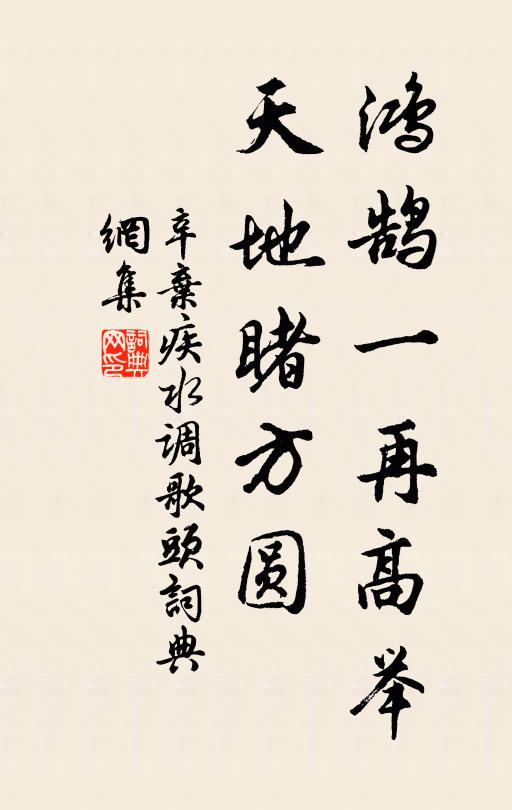 鸿鹄一再高举
天地睹方圆
辛棄疾水调歌頭詞典
網集
詞典网印